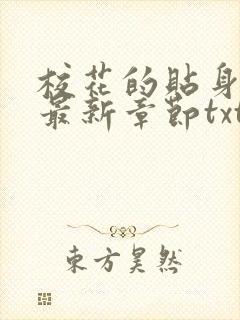 校花的貼身
最新章節txt
東方昊然